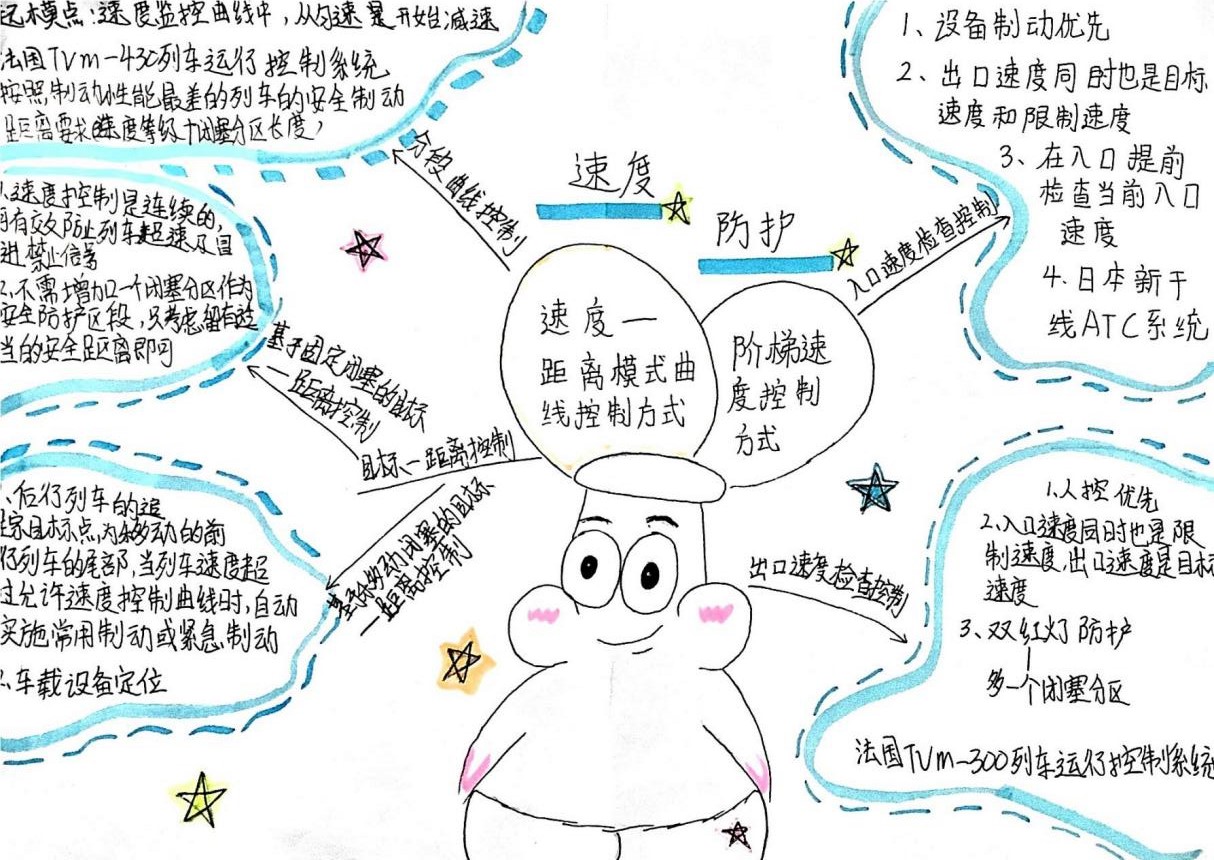 速度
防护
速度一
距离模式曲
线控制方式
阶梯速
度控制
方式
分段曲线控制
法国TVm-430列车运行控制系统
按照制动性能最差的列车的安全制动
1.速度控制是连续的,
有效防止列车超速及冒
进禁止信号
2.不需增加一个闭塞分区作为
安全防护区段,只考虑留有适
当的安全距离即可
基于固定闭塞的目标
一距离控制
目标一距离控制
基于移动闭塞的目标
一距离控制
、后行列车的追
踪目标点,为移动的前
行列车的尾部,当列车速度超
过允许速度控制曲线时,自动
实施常用制动或紧急制动
2、车载设备定位
入口速度检查控制
1、设备制动优先
2、出口速度同时也是目标
速度和限制速度
3、在入口提前
检查当前入口
速度
4.日本新干
线ATC系统
出口速度检查控制
1.人控优先
2.入口速度同时也是限
制速度,出口速度是目标
速度
3、双红灯防护
多一个闭塞分区
法国TVm-300列车运行控制系统